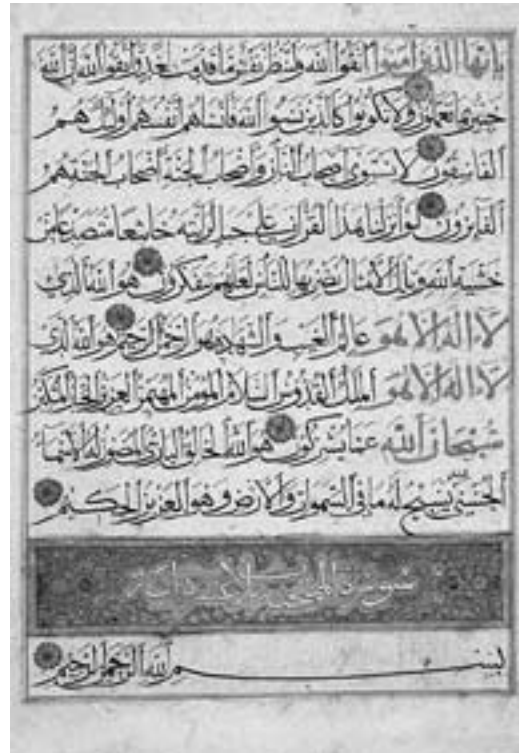 يا أيها الذين آمنوا اتقوا الله ولتنظر نفس ما قدمت لغد واتقوا الله إن الله
خبير بما تعملون ولا تكونوا كالذين نسوا الله فأنساهم أنفسهم أولئك هم
الفاسقون لا يستوي أصحاب النار وأصحاب الجنة أصحاب الجنة هم
الفائزون لو أنزلنا هذا القرآن على جبل لرأيته خاشعا متصدعا من
خشية الله وتلك الأمثال نضربها للناس لعلهم يتفكرون هو الله الذي
لا إله إلا هو عالم الغيب والشهادة هو الرحمن الرحيم هو الله الذي
لا إله إلا هو الملك القدوس السلام المؤمن المهيمن العزيز الجبار المتكبر
سبحان الله عما يشركون هو الله الخالق البارئ المصور له الأسماء
الحسنى يسبح له ما في السموات والأرض وهو العزيز الحكيم
سورة الممتحنة
بسم الله الرحمن الرحيم